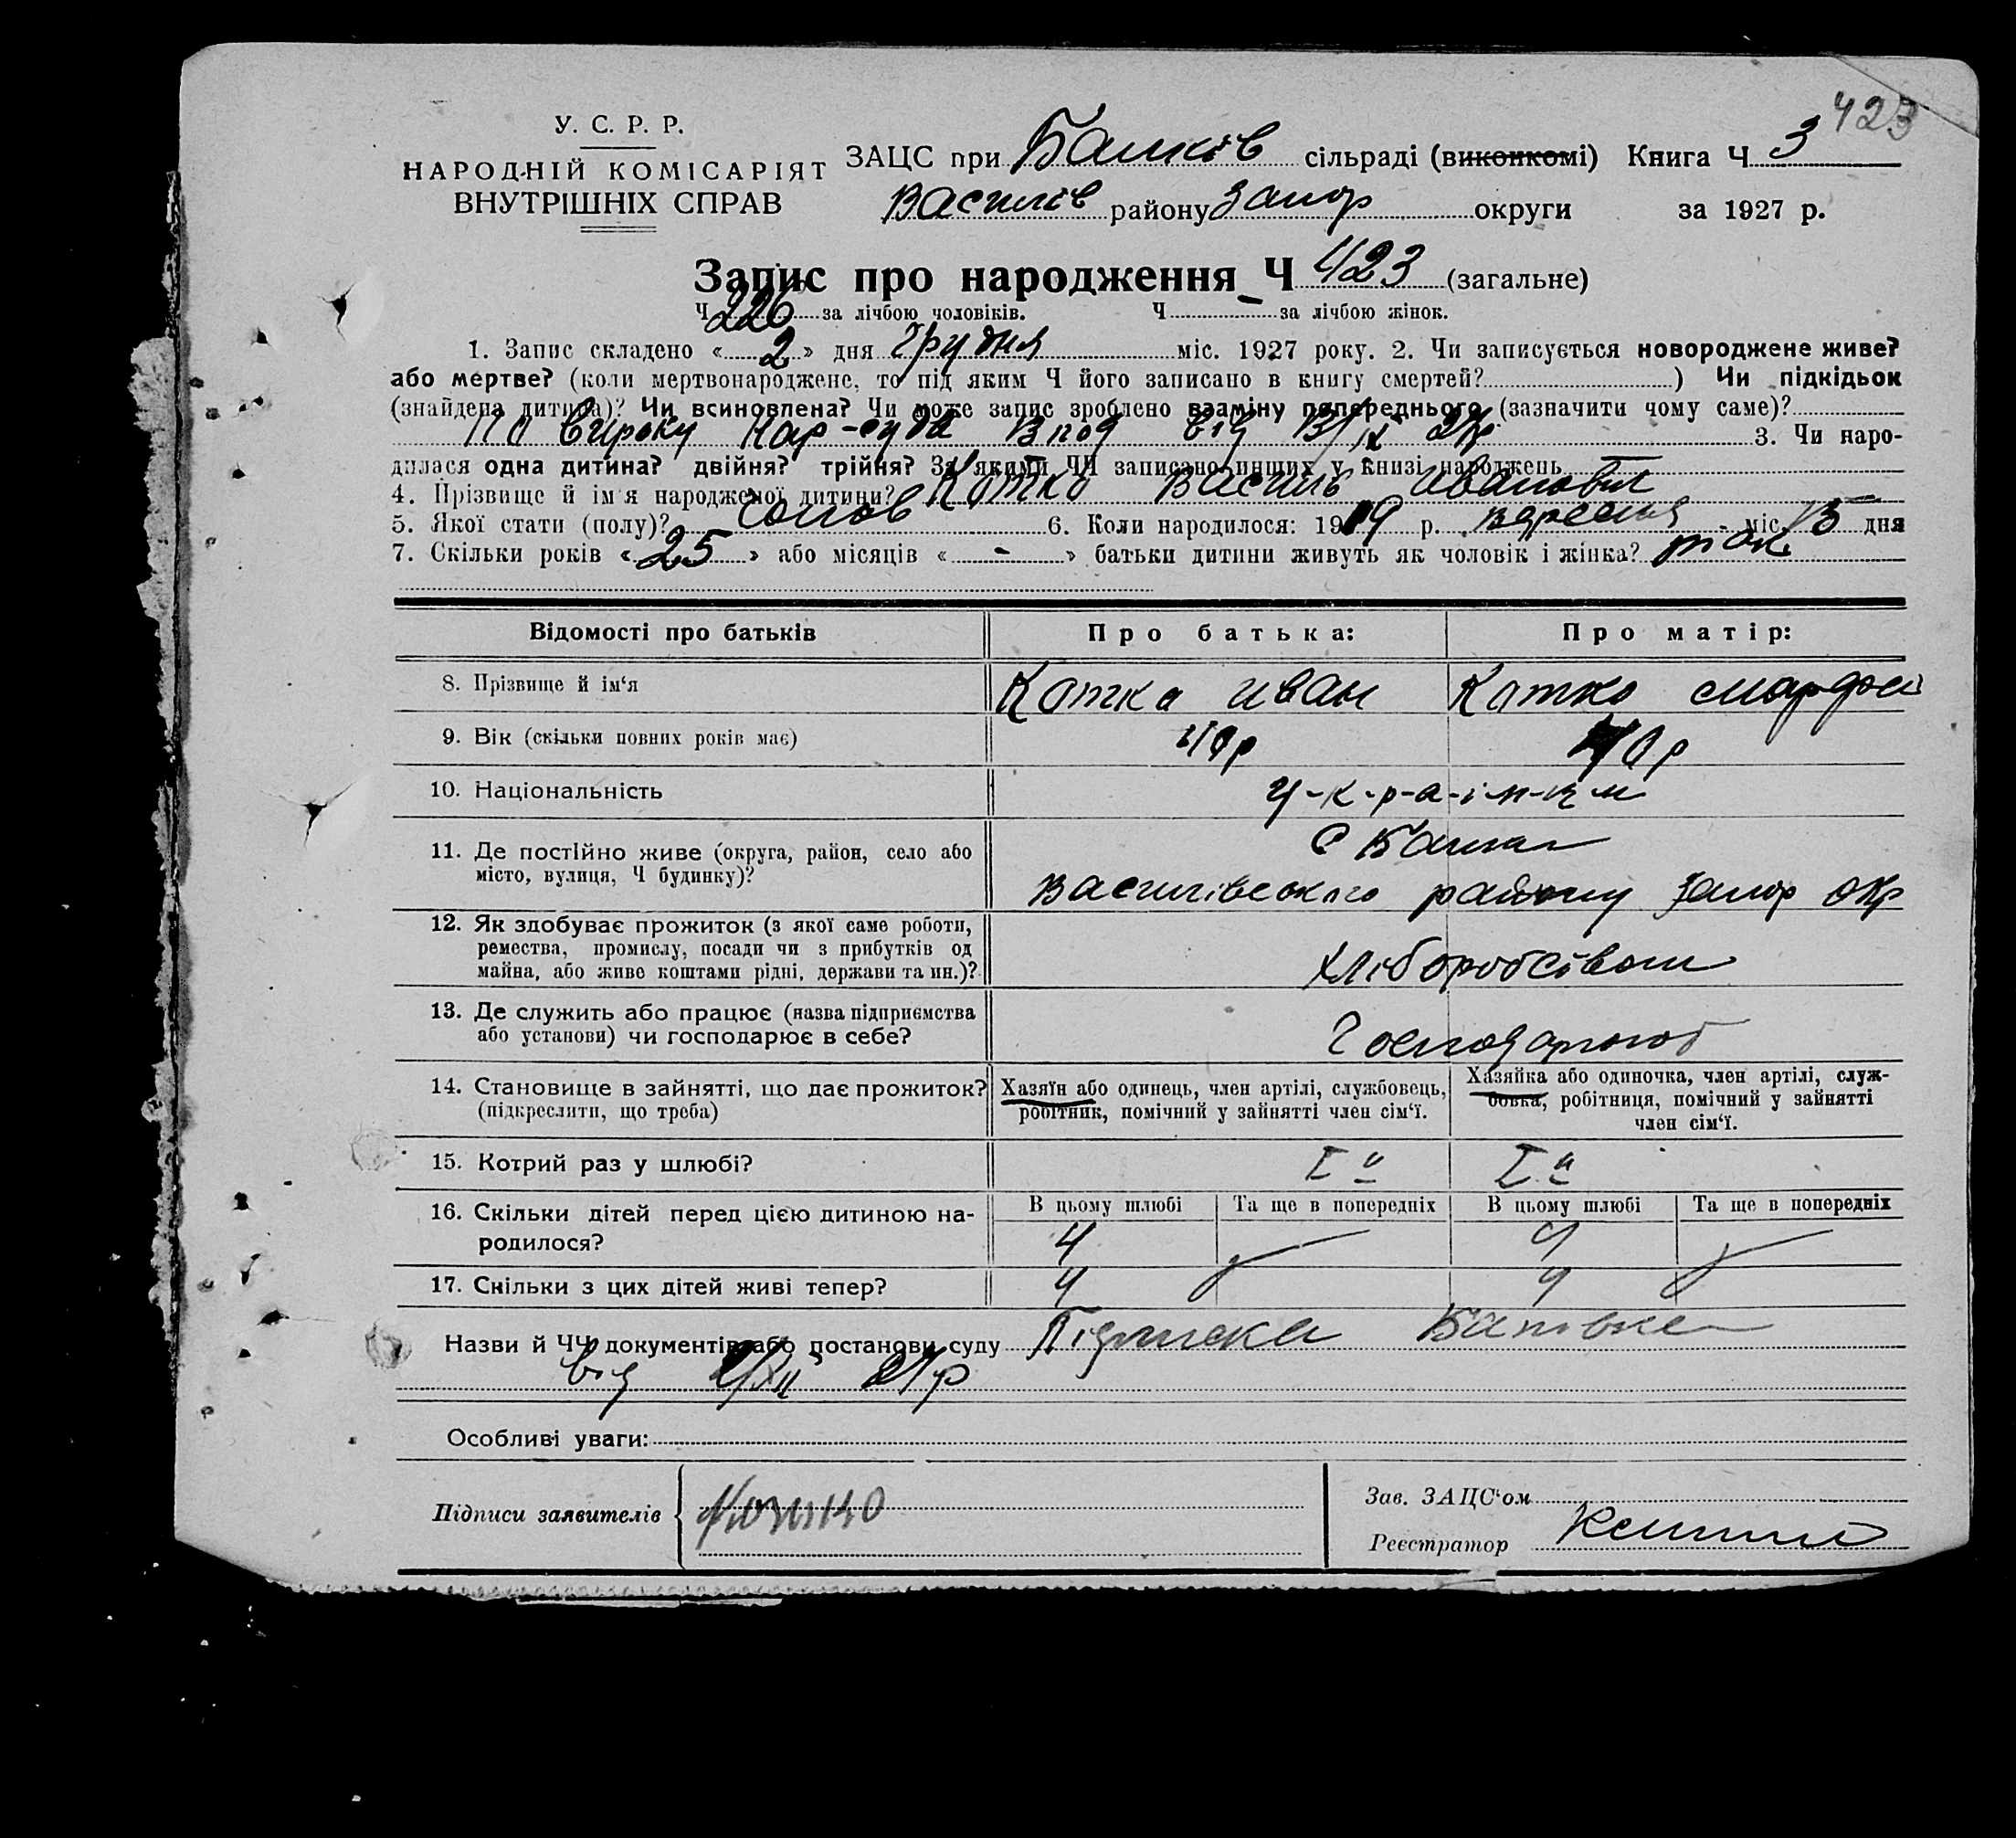 423
У. С. Р. Р.
НАРОДНІЙ КОМІСАРІЯТ
ВНУТРІШНІХ СПРАВ
ЗАЦС при сільраді (виконкомі) Книга Ч 3
Василів району Запор округи за 1927 р.
Запис про народження Ч 423 (загальне)
Ч 226 за лічбою чоловіків. Ч - за лічбою жінок.
1. Запис складено « 2 » дня Грудня міс. 1927 року. 2. Чи записується новороджене живе?
або мертве? (коли мертвонароджене, то під яким Ч його записано в книгу смертей? ) Чи підкідьок
(знайдена дитина)? Чи всиновлена? Чи може запис зроблено взаміну попереднього (зазначити чому саме)?
По вироку Нар-суда від 3. Чи наро-
дилася одна дитина? двійня? трійня? За якими ЧЧ записано инших у книзі народжень
4. Прізвище й ім'я народженої дитини? Котко Василь Іванович
5. Якої стати (полу)? 6. Коли народилося: 1919 р. вересня міс. 15 дня
7. Скільки років « 25 » або місяців « - » батьки дитини живуть як чоловік і жінка? так
Відомості про батьків Про батька: Про матір:
8. Прізвище й ім'я Котка Иван Котко
9. Вік (скільки повних років має) 40р
10. Національність у-к-р-а-і-н-ц-и
11. Де постійно живе (округа, район, село або
місто, вулиця, Ч будинку)?
Василівського району Запор окр
12. Як здобуває прожиток (з якої саме роботи,
ремества, промислу, посади чи з прибутків од
майна, або живе коштами рідні, держави та ин.)?
хліборобством
13. Де служить або працює (назва підприємства
або установи) чи господарює в себе?
14. Становище в зайнятті, що дає прожиток?
(підкреслити, що треба)
Хазяїн або одинець, член артілі, службовець,
робітник, помічний у зайнятті член сім'ї.
Хазяйка або одиночка, член артілі, служ-
бовка, робітниця, помічний у зайнятті
член сім'ї.
15. Котрий раз у шлюбі? I й I й
16. Скільки дітей перед цією дитиною на-
родилося?
В цьому шлюбі Та ще в попередніх В цьому шлюбі Та ще в попередніх
4 4
17. Скільки з цих дітей живі тепер? 4 4
Назви й ЧЧ документів або постанови суду Підписка
від 2/XII 27р
Особливі уваги:
Підписи заявителів Котко
Зав. ЗАЦС'ом
Реєстратор